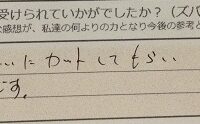 受けられていかがでしたか？（ズバ
な感想が、私達の何よりの力となり今後の参考と
いにカットしてもらい
です。